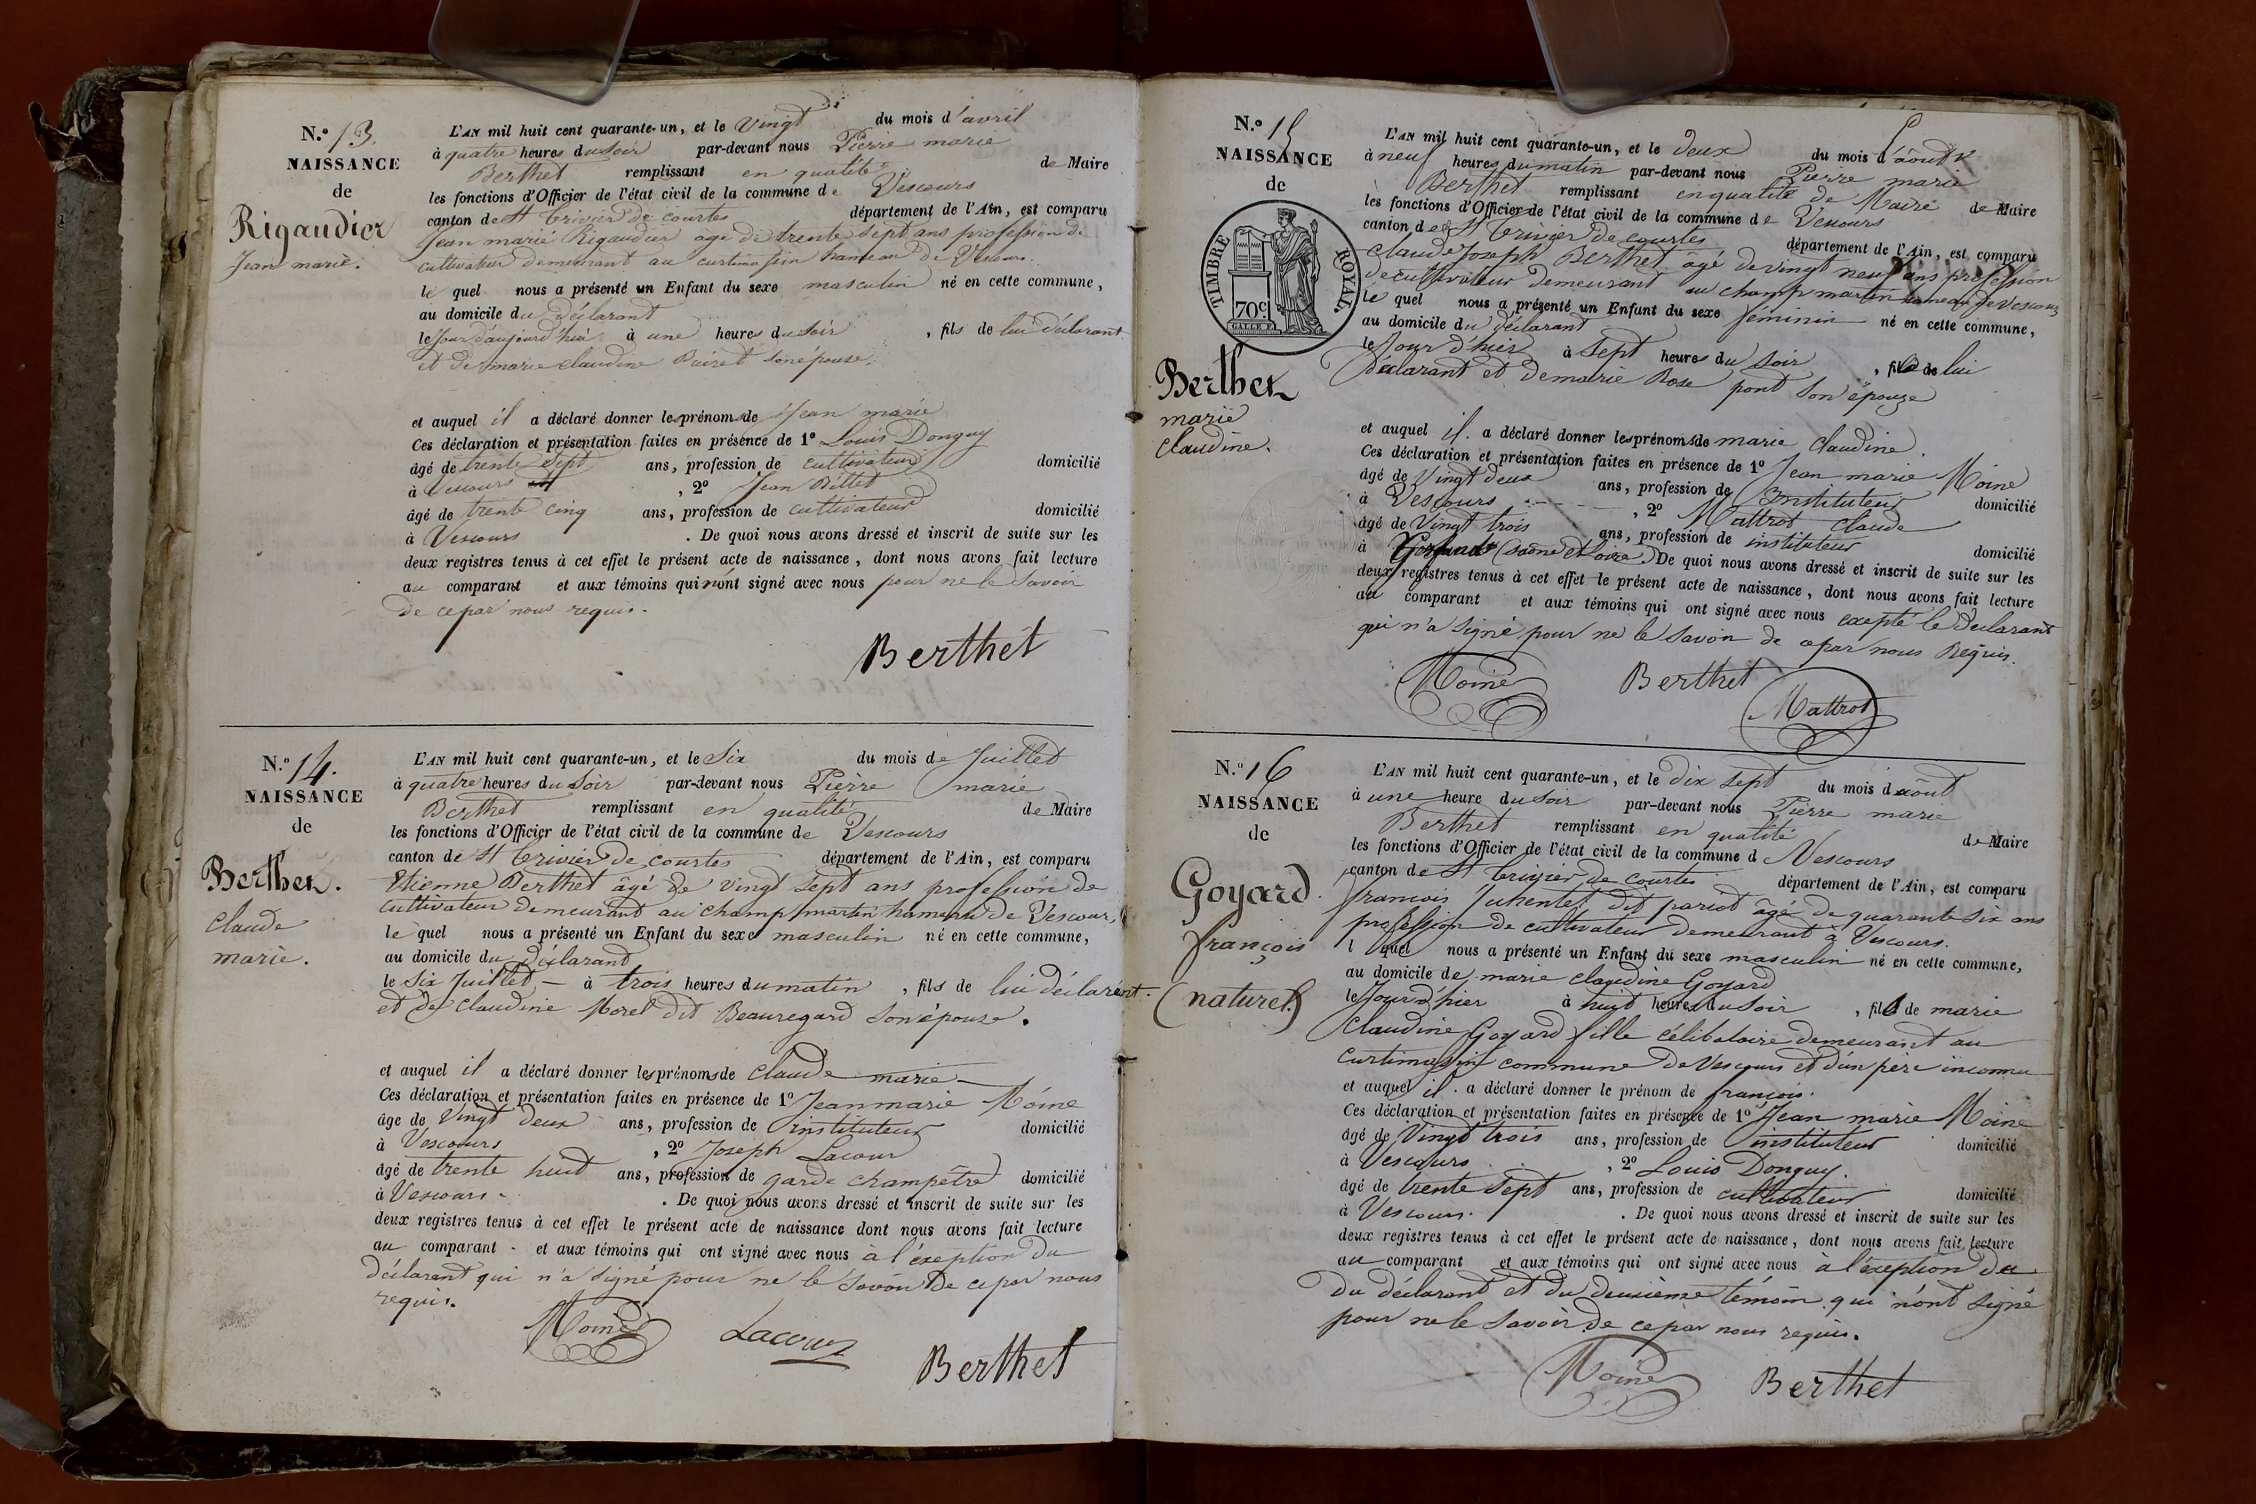 N.º 13.
NAISSANCE
de
Rigaudier
Jean marie.
L'AN mil huit cent quarante-un, et le vingt du mois d'avril
à quatre heures du Soir par-devant nous Pierre marie
Berthet remplissant en qualité de Maire
les fonctions d'Officier de l'état civil de la commune de Vescours
canton de St trivier de courtes département de l'Ain, est comparu
Jean marie Rigaudier âgé de trente sept ans profession de
cultivateur demeurant au curtimassin hameau de Vescours.
le quel nous a présenté un Enfant du sexe masculin né en cette commune,
au domicile du déclarant
le jour d'aujourd'hui à une heures du soir, fils de lui déclarant
et de marie claudine Buiret son épouse.
et auquel il a déclaré donner les prénoms de Jean marie
Ces déclaration et présentation faites en présence de 1º Louis Donguy
âgé de trente sept ans, profession de cultivateur domicilié
à Vescours, 2º Jean Billet
âgé de trente cinq ans, profession de cultivateur domicilié
à Vescours. De quoi nous avons dressé et inscrit de suite sur les
deux registres tenus à cet effet le présent acte de naissance, dont nous avons fait lecture
au comparant et aux témoins qui n'ont signé avec nous pour ne le savoir
de ce par nous requis.
Berthet
N.º 14.
NAISSANCE
de
Berthet.
claude
marie.
L'AN mil huit cent quarante-un, et le Six du mois de Juillet
à quatre heures du Soir par-devant nous Pierre marie
Berthet remplissant en qualité de Maire
les fonctions d'Officier de l'état civil de la commune de Vescours
canton de St trivier de courtes département de l'Ain, est comparu
Etienne Berthet âgé de vingt sept ans profession de
cultivateur demeurant au champ martin hameau de Vescours,
le quel nous a présenté un Enfant du sexe masculin né en cette commune,
au domicile du déclarant
le Six Juillet à trois heures du matin, fils de lui déclarant.
et de Claudine Morel dit Beauregard son épouse.
et auquel il a déclaré donner les prénoms de Claude marie
Ces déclaration et présentation faites en présence de 1º Jean marie Moine
âge de Vingt deux ans, profession de instituteur domicilié
à Vescours, 2º Joseph Lacour
âgé de trente huit ans, profession de garde champêtre domicilié
à Vescours. De quoi nous avons dressé et inscrit de suite sur les
deux registres tenus à cet effet le présent acte de naissance dont nous avons fait lecture
au comparant et aux témoins qui ont signé avec nous à l'exeption du
déclarant qui n'a signé pour ne le savoir de ce par nous
requis.
Moine Lacour
Berthet
N.º 15
NAISSANCE
de
TIMBRE ROYAL.
70c
Berthet
marie
claudine.
L'AN mil huit cent quarante-un, et le deux du mois d'août
à neuf heures du matin par-devant nous Pierre marie
Berthet remplissant en qualité de Maire de Maire
les fonctions d'Officier de l'état civil de la commune de Vescours
canton de St trivier de courtes département de l'Ain, est comparu
claude Joseph Berthet âgé de vingt neuf ans profession
de cultivateur demeurant au champ martin hameau de Vescours
le quel nous a présenté un Enfant du sexe féminin né en cette commune,
au domicile du déclarant
le Jour d'hier à Sept heures du Soir, fille de lui
déclarant et de marie Rose pont son épouse
et auquel il a déclaré donner les prénoms de marie Claudine.
Ces déclaration et présentation faites en présence de 1º Jean marie Moine
âgé de Vingt deux ans, profession de Instituteur domicilié
à Vescours, 2º Mattrot Claude
âgé de Vingt trois ans, profession de instituteur domicilié
à (Saône et Loire). De quoi nous avons dressé et inscrit de suite sur les
deux registres tenus à cet effet le présent acte de naissance, dont nous avons fait lecture
au comparant et aux témoins qui ont signé avec nous exepté le déclarant
qui n'a signé pour ne le savoir de ce par nous Requis.
Moine Berthet
Mattrot
N.º 16
NAISSANCE
de
Goyard
françois
(naturel)
L'AN mil huit cent quarante-un, et le dix sept du mois d'août
à une heure du soir par-devant nous Pierre marie
Berthet remplissant en qualité de Maire
les fonctions d'Officier de l'état civil de la commune d Vescours
canton de St trivier de courtes département de l'Ain, est comparu
françois Juhentet dit pariot âgé de quarante six ans
profession de cultivateur demeurant à Vescours.
l quel nous a présenté un Enfant du sexe masculin né en cette commune,
au domicile de marie claudine Goyard
le Jour d'hier à huit heures du soir, fils de marie
Claudine Goyard fille célibataire demeurant au
curtimassin commune de Vescours et d'un père inconnu
et auquel il a déclaré donner le prénom de françois.
Ces déclaration et présentation faites en présence de 1º Jean marie Moine
âgé de Vingt trois ans, profession de instituteur domicilié
à Vescours, 2º Louis Donguy.
âgé de trente sept ans, profession de cultivateur domicilié
à Vescours. De quoi nous avons dressé et inscrit de suite sur les
deux registres tenus à cet effet le présent acte de naissance, dont nous avons fait lecture
au comparant et aux témoins qui ont signé avec nous à l'exeption du
du déclarant et du deuxième témoin qui n'ont signé
pour ne le savoir de ce par nous requis.
Moine Berthet